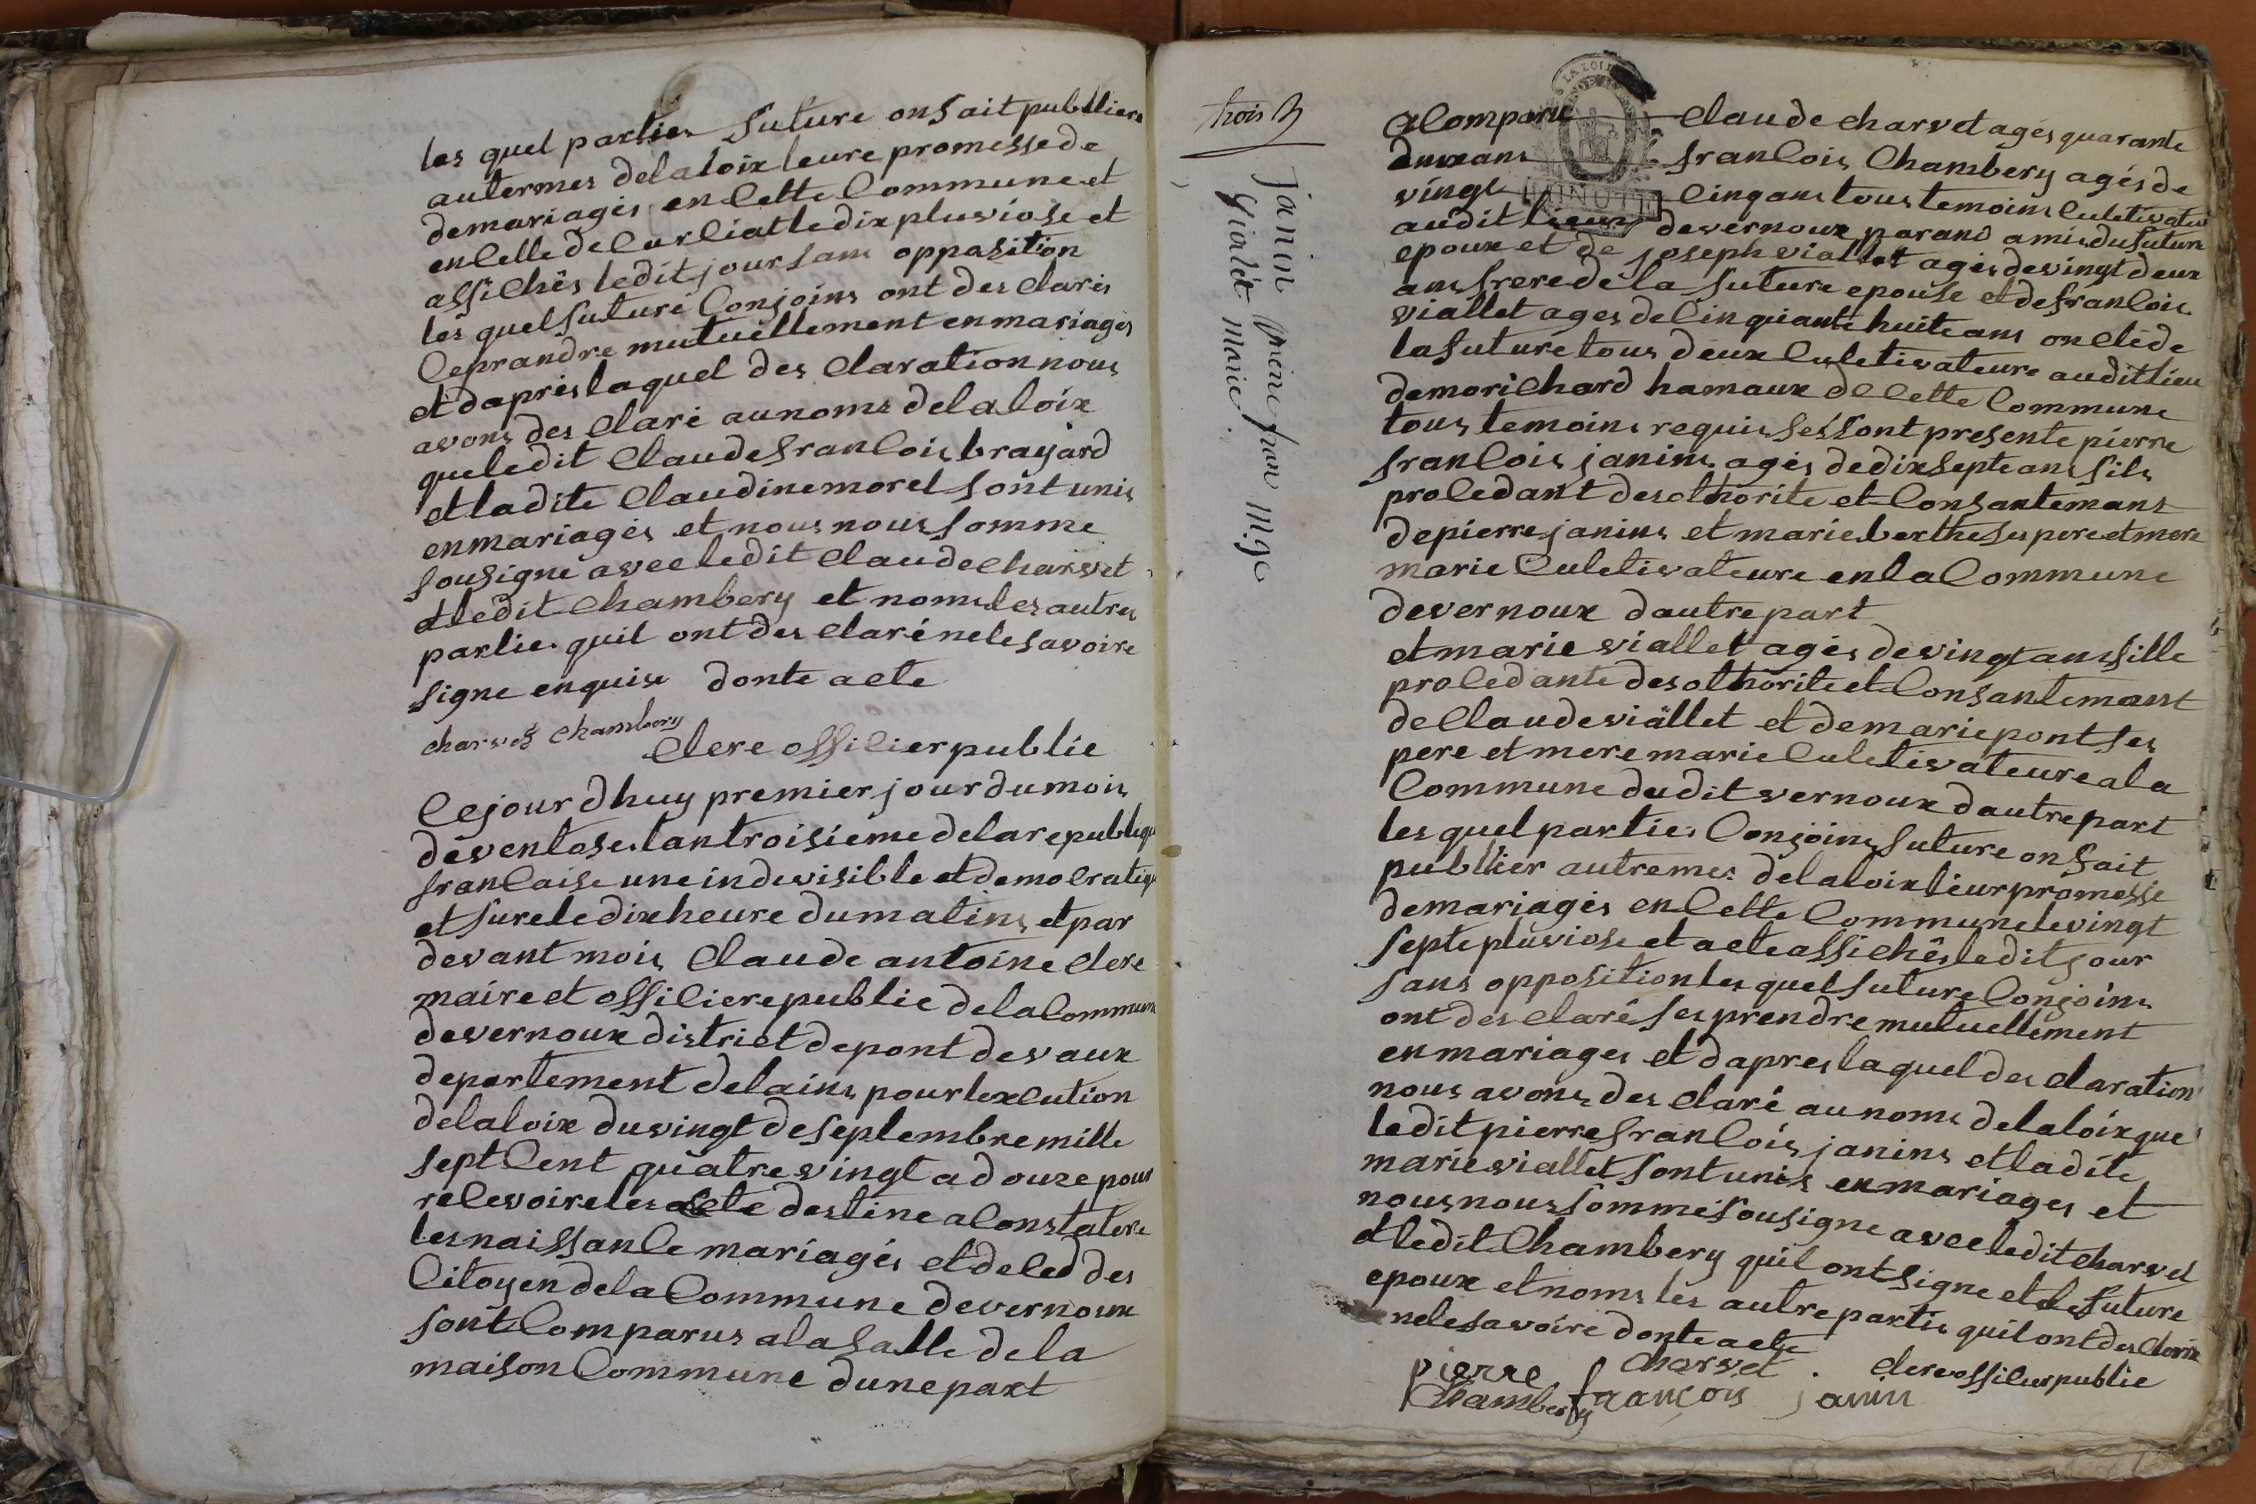 les quel parties future on fait publiere
autermes delaloix leure promesse de
demariagés en cette Commune et
encelle de curciat ledix pluviose et
affichés ledit jour sans opposition
les quel futuré Conjoins ont des clarés
ceprandre mutuellement en mariages
et daprés laquel des claration nous
avons des claré aunoms delaloix
queledit claude francois brayard
et ladite claudine morel sont unis
enmariagés et nous nous somme
sousigné avec ledit claude charvet
et ledit chambery et noms les autres
parties quil ont des claré nele savoire
signe enquise donte acte
charvet chambery
clere officier publie
Cejourdhuy premier jour du mois
deventose lan troisieme delarepublique
francaise une indevisible et democratique
et sure le dix heure du matins et par
devant mois claude antoine clere
maire et officiere publie delacommune
devernoux district depont devaux
departement delains pour lexcution
delaloix duvingt deseptembre mille
sept cent quatre vingt adouze pour
relevoire les acte destine aconstatere
les naissance mariagés et deced des
Citoyen dela Commune devernoux
sont Comparus alasalle dela
maison Commune dune part
trois
janin pierre fran m.ge
viallet marie
acomparu claude charvet agés quarante
deux ans francois chambery agés de
vingt cinq ans tous temoins culetivateu
audit lieux devernoux parans amis du future
epoux et de joseph viallet agés devingt deux
ans frere de la future epouse et de francois
viallet ages de cinquante huite ans oncle de
la future tous deux culetivateure audit lieu
demorichard hamaux de cette Commune
tous temoins requis sessont presente pierre
francois janins agés dedix septe ans fils
procedant des othorite et Consantemant
de pierre janins et marie berthe ses pere et mere
marie culetivateure en la Commune
devernoux dautre part
et marie viallet agés devingt ans fille
procedante des othorite et Consantemant
de claude viallet et de marie pont ses
pere et mere marie culetivateure ala
Commune dudit vernoux dautre part
les quel parties Conjoins future on fait
publier autremes delaloix leur promesse
demariagés en Cette Commune le vingt
septe pluviose et acte affichés ledit jour
sans opposition les quel future Conjoins
ont des claré ses prendre mutuellement
en mariages et dapres laquel des claration
nous avons des claré aunoms delaloix que
ledit pierre francois janins et ladite
marie viallet sont unis en mariages et
nous nous somme sousigne avec ledit charvet
et ledit chambery quil ont signe et le future
epoux et noms les autre partis quil ont des claré
nele savoire donte acte
pierre charvet . clere officier publie
chambery françois janin